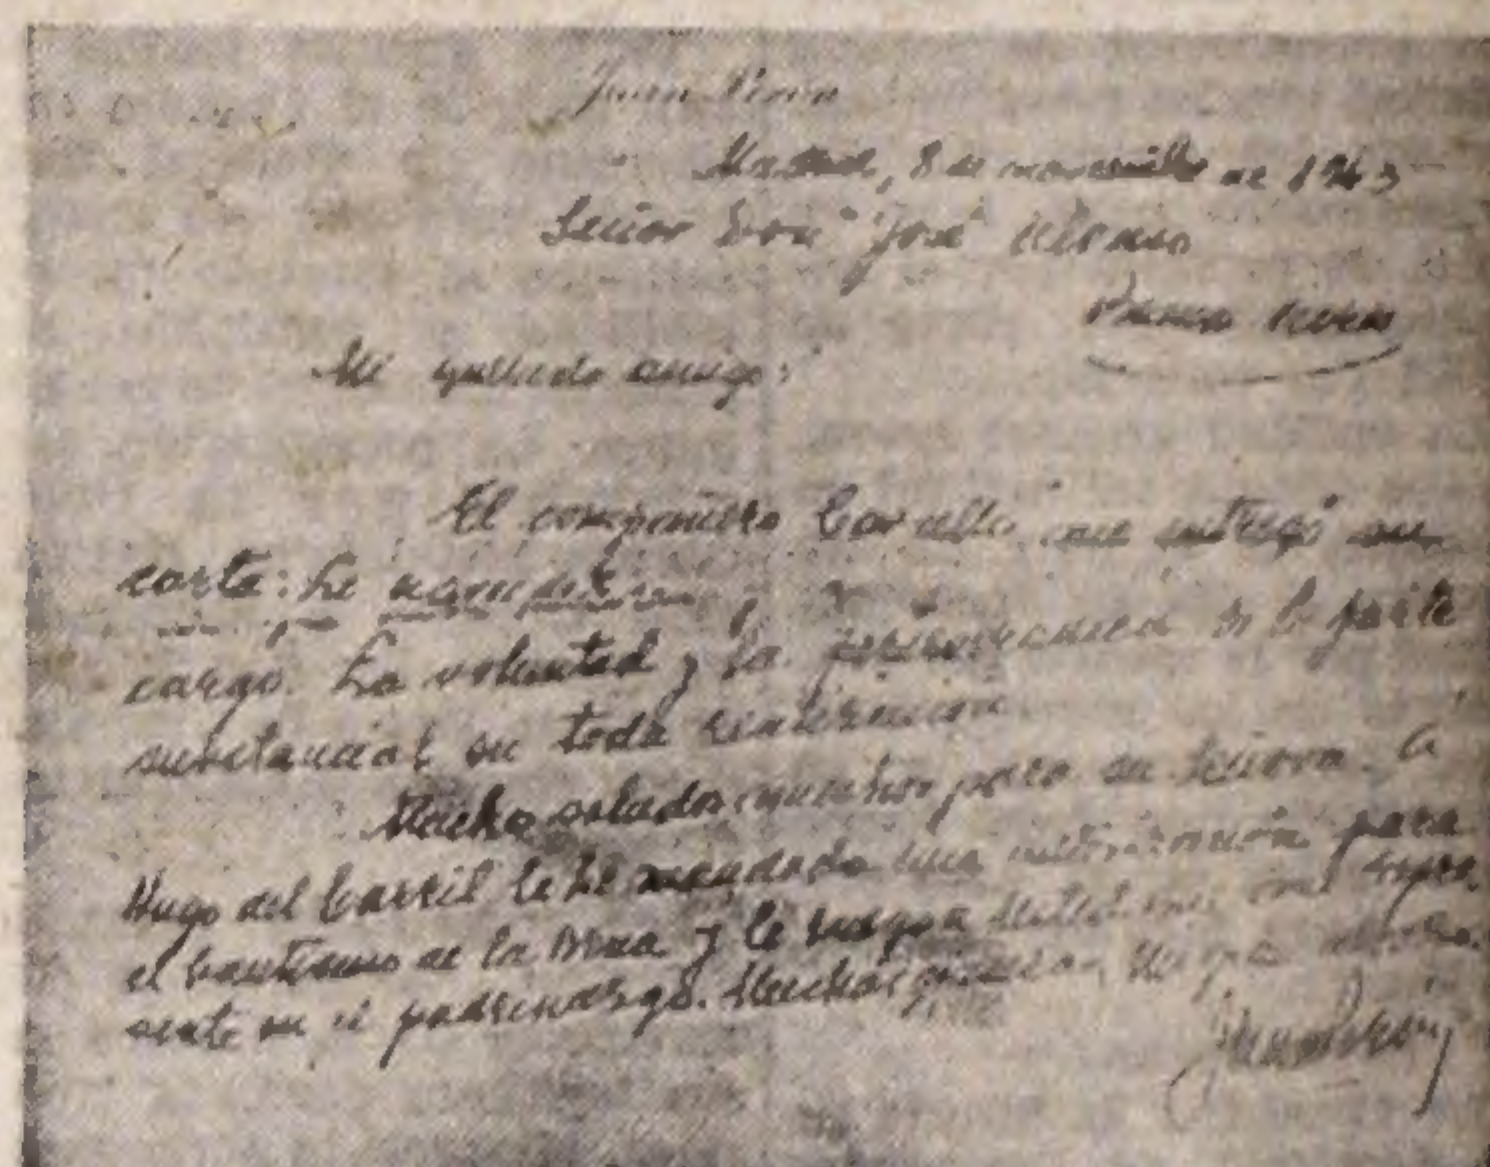 Juan Perón
Madrid, 8 de noviembre de 1963
Señor Don José Alonso
Buenos Aires
Mi querido amigo:
El compañero me entregó su
carta. Le
cargo. La voluntad y la perseverancia es la parte
substancial en toda realización.
Mucho saludos muchos para su Señora. A
Hugo del Carril le he mandado una autorización para
el bautismo de la nena y le ruego a Usted me repre
sente en el padrinazgo. Muchas gracias. Un gran abrazo.
Juan Perón